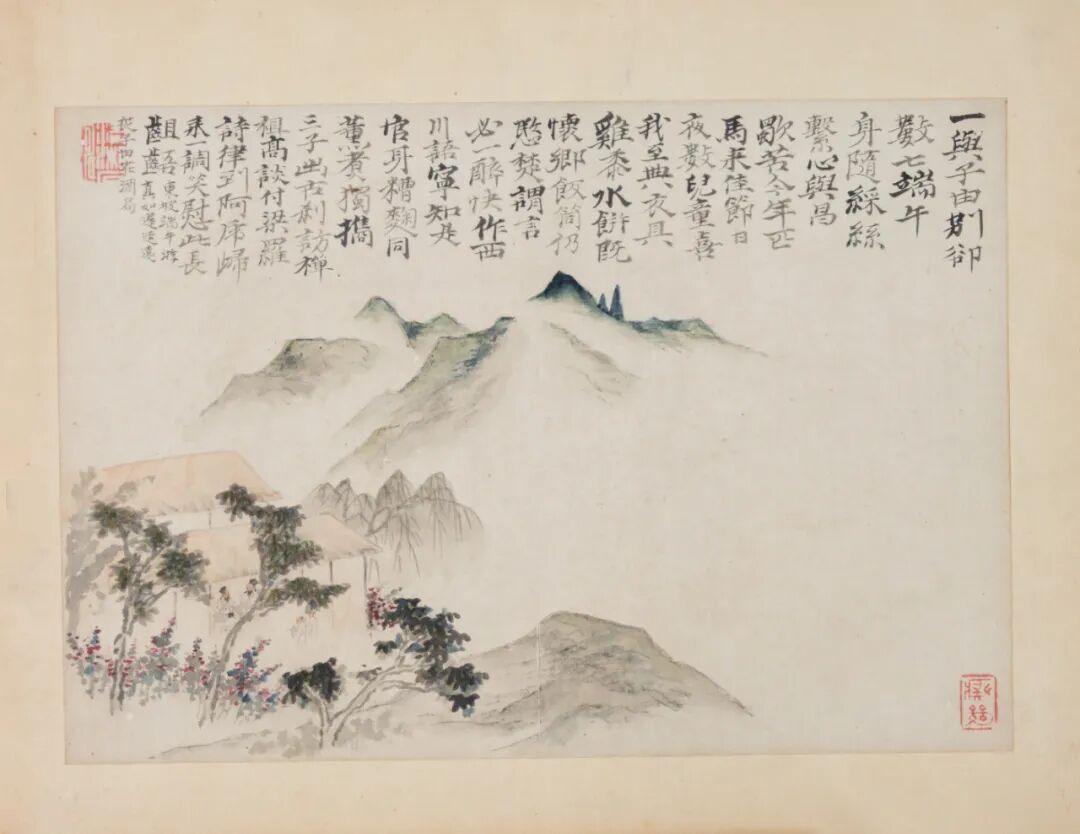 一與子由別卻
數七端午
身隨綵絲
繫心與昌
歜苦今年匹
馬來佳節日
夜數兒童喜
我至典衣具
雞黍水餅既
懷鄉飯筒仍
愍楚謂言
必一醉快作西
川語寧知是
官身糟麴同
薰煮獨攜
三子出古刹訪禪
祖高談付梁羅
詩律到阿虎歸
來一調笑慰此長
齟齬東坡端午游
真如遲适遠
從子由在酒局